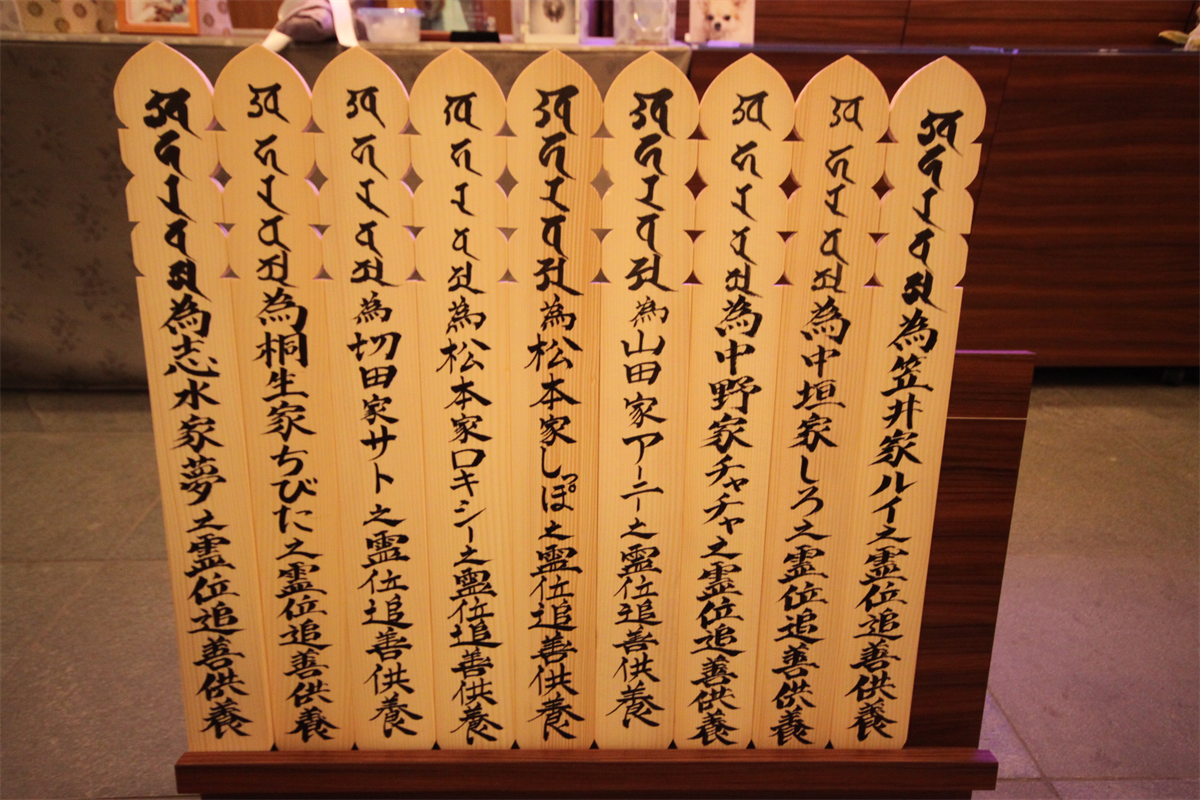 為笠井家ルイ之霊位追善供養
為中垣家しろ之霊位追善供養
為中野家チャチャ之霊位追善供養
為山田家アーニー之霊位追善供養
為松本家しっぽ之霊位追善供養
為松本家ロキシー之霊位追善供養
為切田家サト之霊位追善供養
為桐生家ちびた之霊位追善供養
為志水家夢之霊位追善供養